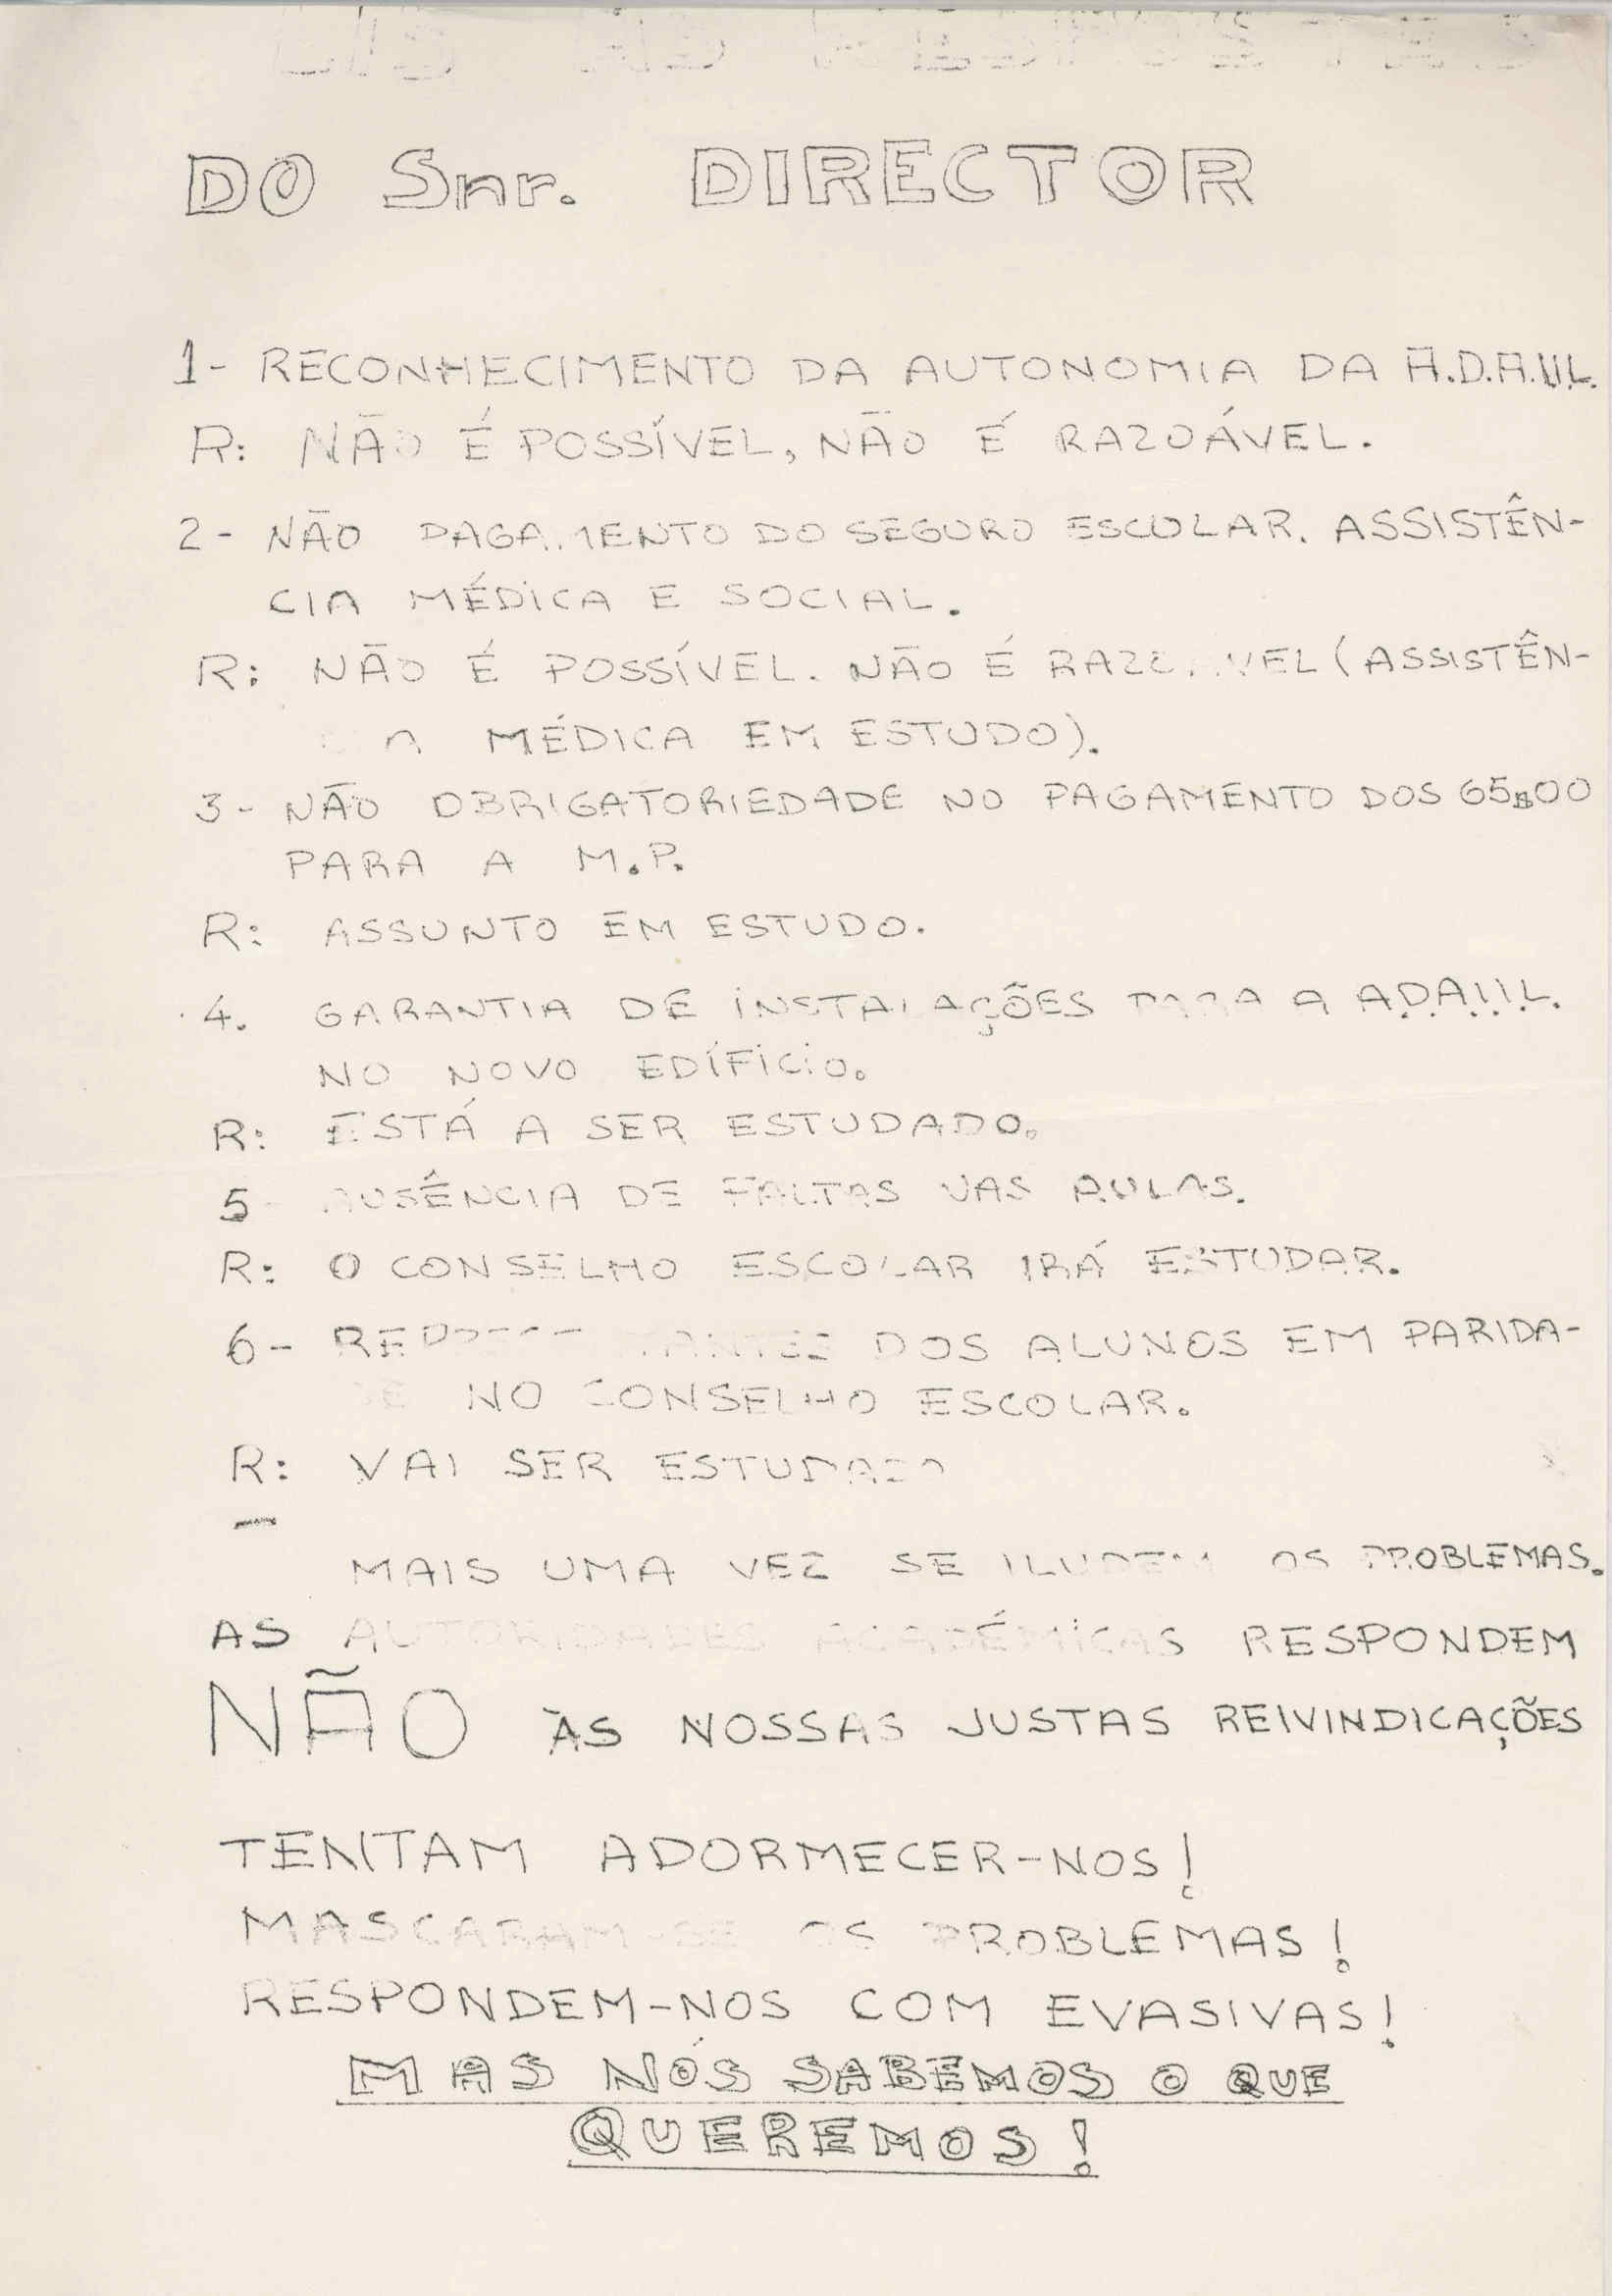 DO Snr. DIRECTOR
1- RECONHECIMENTO DA AUTONOMIA DA A.D.A.I.I.L.
R: NÃO É POSSÍVEL, NÃO É RAZOÁVEL.
2- NÃO PAGAMENTO DO SEGURO ESCOLAR. ASSISTÊN-
CIA MÉDICA E SOCIAL.
R: NÃO É POSSÍVEL. NÃO É RAZOÁVEL (ASSISTÊN-
CIA MÉDICA EM ESTUDO).
3- NÃO OBRIGATORIEDADE NO PAGAMENTO DOS 65$00
PARA A M.P.
R: ASSUNTO EM ESTUDO.
4. GARANTIA DE INSTALAÇÕES PARA A A.D.A.I.I.L.
NO NOVO EDÍFICIO.
R: ESTÁ A SER ESTUDADO.
5- AUSÊNCIA DE FALTAS NAS AULAS.
R: O CONSELHO ESCOLAR IRÁ ESTUDAR.
6- REPRESENTANTES DOS ALUNOS EM PARIDA-
DE NO CONSELHO ESCOLAR.
R: VAI SER ESTUDADO
MAIS UMA VEZ SE ILUDEM OS PROBLEMAS.
AS AUTORIDADES ACADÉMICAS RESPONDEM
NÃO ÀS NOSSAS JUSTAS REIVINDICAÇÕES
TENTAM ADORMECER-NOS!
MASCARAM-SE OS PROBLEMAS!
RESPONDEM-NOS COM EVASIVAS!
MAS NÓS SABEMOS O QUE
QUEREMOS!